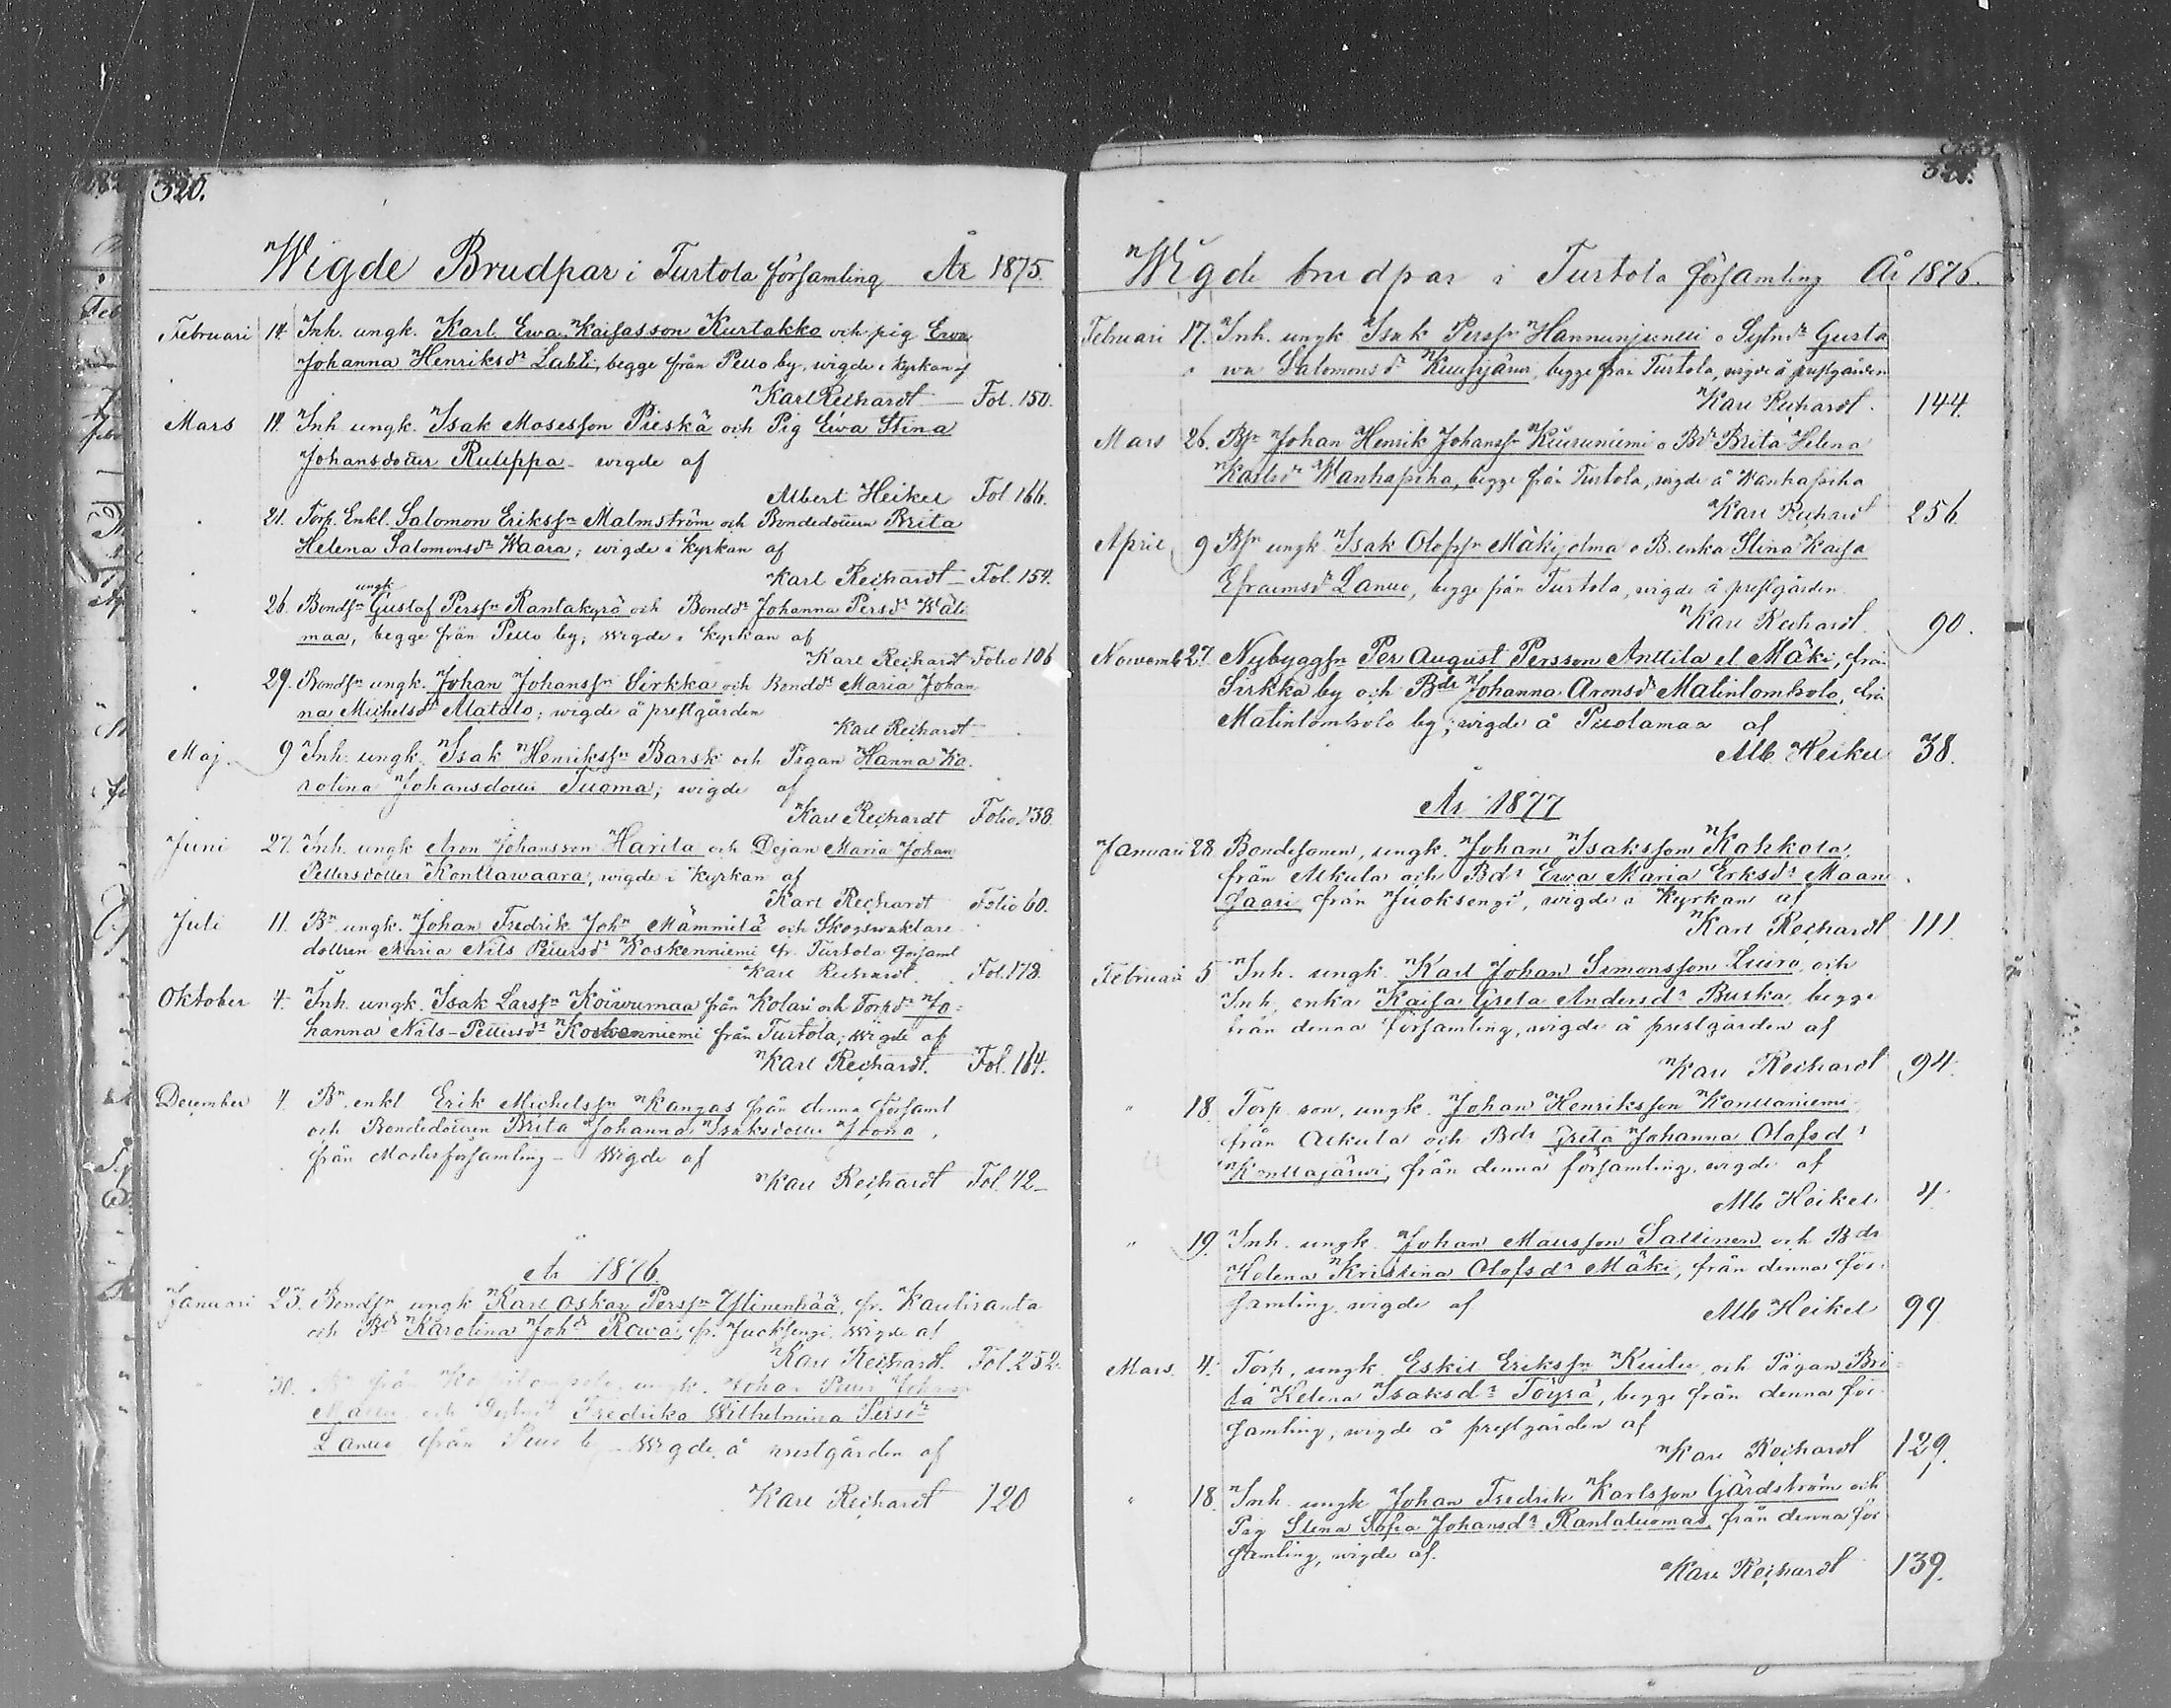 320.
Wigde Brudpar i Turtola församling År 1875.
Februari 14. Inh. ungk. Karl Ewa Kaisasson Kurtakko och pig Ewa
Johanna Henriksdr Lahti, begge från Pello by, wigde i kyrkan af
Karl Reichardt — Fol. 150.
Mars 14. Inh ungk. Isak Mosesson Pieskä och Pig Ewa Stina
Johansdotter Ruleppa - wigde af
Albert Heikel Fol 166.
21. Torp. Enkl. Salomon Erikssn Malmström och Bondedottren Brita
Helena Salomonsdr Waara; wigde i kyrkan af
Karl Reichardt — Fol. 154.
ungk
26. Bondsn Gustaf Perssn Rantakyrö och Bonddr Johanna Persdr Wäli
maa, begge från Pello by; wigde i kyrkan af
Karl Reichardt Folio 106
29. Bondsn ungk. Johan Johanssn Sirkka och Bonddr Maria Johan
na Michelsdr Alatalo; wigde å prestgården
Karl Reichardt
Maj. 9 Inh. ungk. Isak Henrikssn Barsk och Pigan Hanna Ka
rolina Johansdotter Tuoma; wigde af
Karl Reichardt Folio 138.
Juni 27. Inh. ungk Aron Johansson Harila och Dejan Maria Johan
Pettersdotter Konttawaara, wigde i kyrkan af
Karl Reichardt Folio 60.
Juli 11. Bn. ungk. Johan Fredrik John Mämmilä och Skogswaktare
dottren Maria Nils Pettersdr Koskenniemi fr. Turtola församl
Karl Reichardt. Fol. 178.
Oktober 4. Inh. ungk. Isak Larssn Koiwumaa från Kolari och Torpdr Jo=
hanna Nils-Pettersdr Koskenniemi från Turtola; wigde af
Karl Reichardt. Fol. 164.
December 4. Bn. enkl Erik Michelssn Kangas från denna församl
och Bondedottren Brita Johanna Isaksdotter Joona,
från Moderförsamling - wigde af
Karl Reichardt Fol. 42-
År 1876.
Januari 23. Bondsn ungk Karl Oskar Perssn Ylinenhää, fr. Kauliranta
och Bdr Karolina Johdr Rowa, fr. Juoksengi. wigde af
Karl Reichardt. Fol. 252.
30. från ungk. Johan Petter Johans
och Fredrika Wilhelmina Persdr
Lantto från Pello by - wigde å prestgården af
Karl Reichardt 120
Wigde brudpar i Turtola församling År 1876.
Februari 17. Inh. ungk Isak Perssn Hannunjuntti o Sytndr Gusta
wa Salomonsdr Kuusijärwi, begge från Turtola, wigde å prestgården
Karl Reichardt. 144.
Mars 26. Bsn Johan Henrik Johanssn Kuuruniemi o Bdr Brita Helena
Karlsdr Wanhapiha, begge från Turtola, wigde å Wanhapiha
Karl Reichardt 256
April 9 Bsn ungk. Isak Olofssn Mäkijolma o B. enka Stina Kaisa
Efraimsdr Lantto, begge från Turtola, wigde å prestgården.
Karl Reichardt. 90.
Novemb 27. Nybyggsn Per August Persson Anttila el Mäki, från
Sirkka by och Bdr Johanna Aronsdr Matinlombolo, från
Matinlombolo by; wigde å Pisolamaa af
Alb Heikel 38.
År 1877
Januari 28 Bondesonen, ungk. Johan Isaksson Kahkola,
från Alkula och Bdr Ewa Maria Erksdr Maan
saari från Juoksengi, wigde i Kyrkan af
Karl Reichardt 111.
Februari 5 Inh. ungk. Karl Johan Simonsson Luiro och
Inh. enka Kaisa Greta Andersdr Buska, begge
från denna församling, wigde å prestgården af
Karl Reichardt 94.
" 18 Torp. son, ungk. Johan Henriksson Konttaniemi
från Alkula och Bdr Greta Johanna Olofsdr
Konttajärwi, från denna församling, wigde af
Alb Heikel 4.
" 19. Inh. ungk. Johan Mattsson Sallinen och Bdr
Helena Kristina Olofsdr Mäki, från denna för-
samling, wigde af Alb Heikel 99
Mars. 4. Torp, ungk. Eskil Erikssn Kuitu och Pigan Bri=
ta Helena Isaksdr Töyrä, begge från denna för-
samling, wigde å prestgården af
Karl Reichardt 129.
" 18. Inh. ungk Johan Fredrik Karlsson Gärdström och
Pig Stina Sofia Johansdr Rantatuomas, från denna för
samling, wigde af.
Karl Reichardt 139.